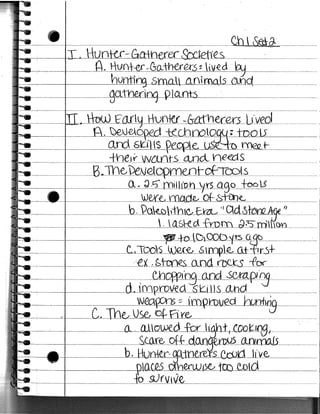 Ch 1 Sect 2
I. Hunter-Gatherer Societies
A. Hunter-Gatherers = lived by
hunting small animals and
gathering plants
II. How Early Hunter-Gatherers Lived
A. Developed technology = tools
and skills people use to meet
their wants and needs
B. The Development of Tools
a. 2.5 million yrs ago tools
were made of stone
b. Paleolithic Era "Old Stone Age"
1. lasted from 2.5 million
to 10,000 yrs ago
c. Tools were simple at first
ex. stones and rocks for
chopping and scraping
d. improved skills and
weapons = improved hunting
C. The Use of Fire
a. allowed for light, cooking,
scare off dangerous animals
b. Hunter-gatherers could live
places otherwise too cold
to survive